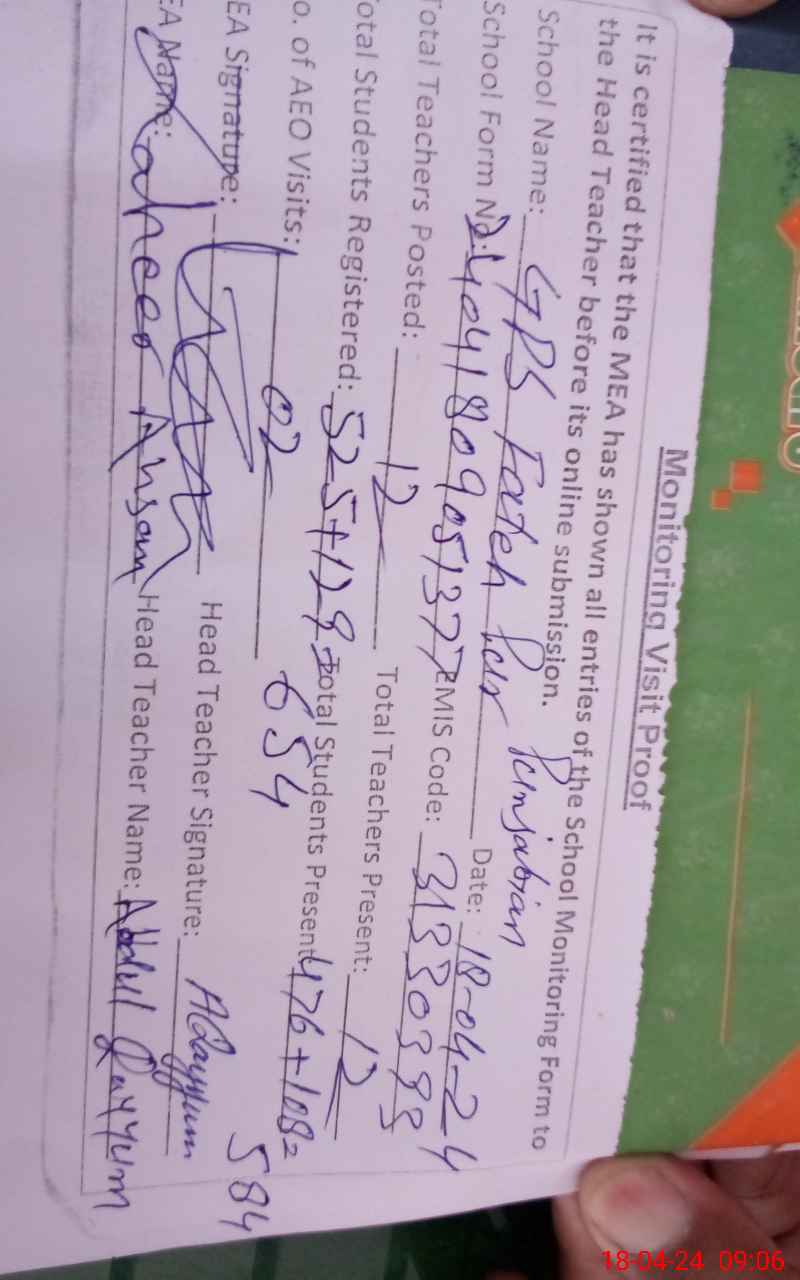 Monitoring Visit Proof
It is certified that the MEA has shown all entries of the School Monitoring Form to
the Head Teacher before its online submission.
School Name: GPS Fateh Pur Punjabian
School Form No: 24041809051377 Date: 18-04-24
Total Teachers Posted: 12 EMIS Code: 31330393
Total Students Registered: 525+129= 654 Total Teachers Present: 12
No. of AEO Visits: 02 Total Students Present: 476+108= 584
EA Signature: Head Teacher Signature: AQayyum
EA Name: Zaheer Ahsan Head Teacher Name: Abdul Qayyum
18-04-24 09:06